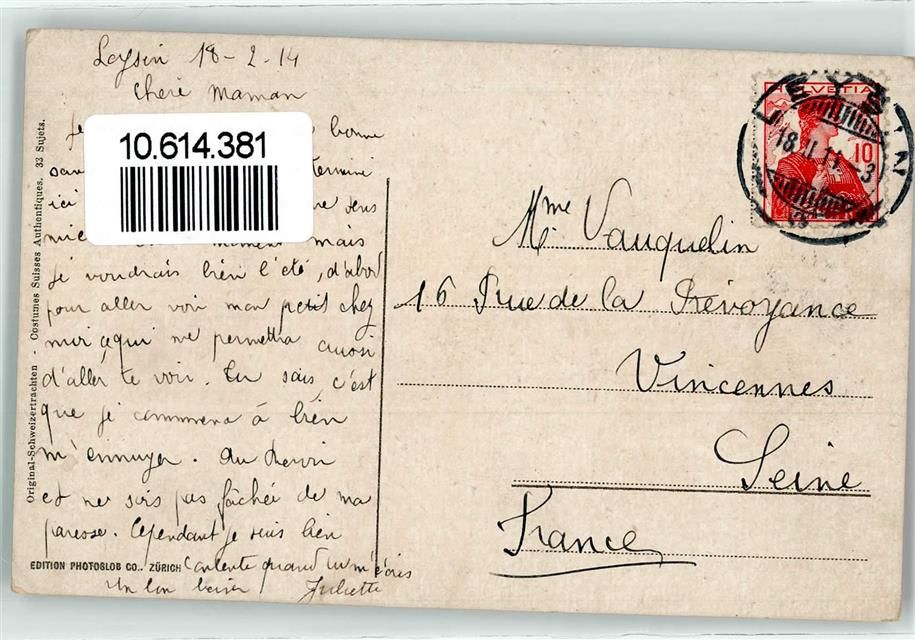 Leysin 18-2-14
Chère Maman
je bonne
termini
ici
mais
je voudrais bien l'été, d'abord
pour aller voir mon petit chez
mir ce qui me permettra aussi
d'aller te voir. Tu sais c'est
que je commence à bien
m'ennuyer. Au revoir
et ne sois pas fâchée de ma
paresse. Cependant je suis bien
contente quand tu m'écris
Un bon baiser Juliette
10.614.381
Original-Schweizertrachten - Costumes Suisses Authentiques. 33 Sujets.
EDITION PHOTOGLOB CO., ZÜRICH
HELVETIA
10
LEYSIN
18.II.14.-3
Mme Vauquelin
16 Rue de la Prévoyance
Vincennes
Seine
France